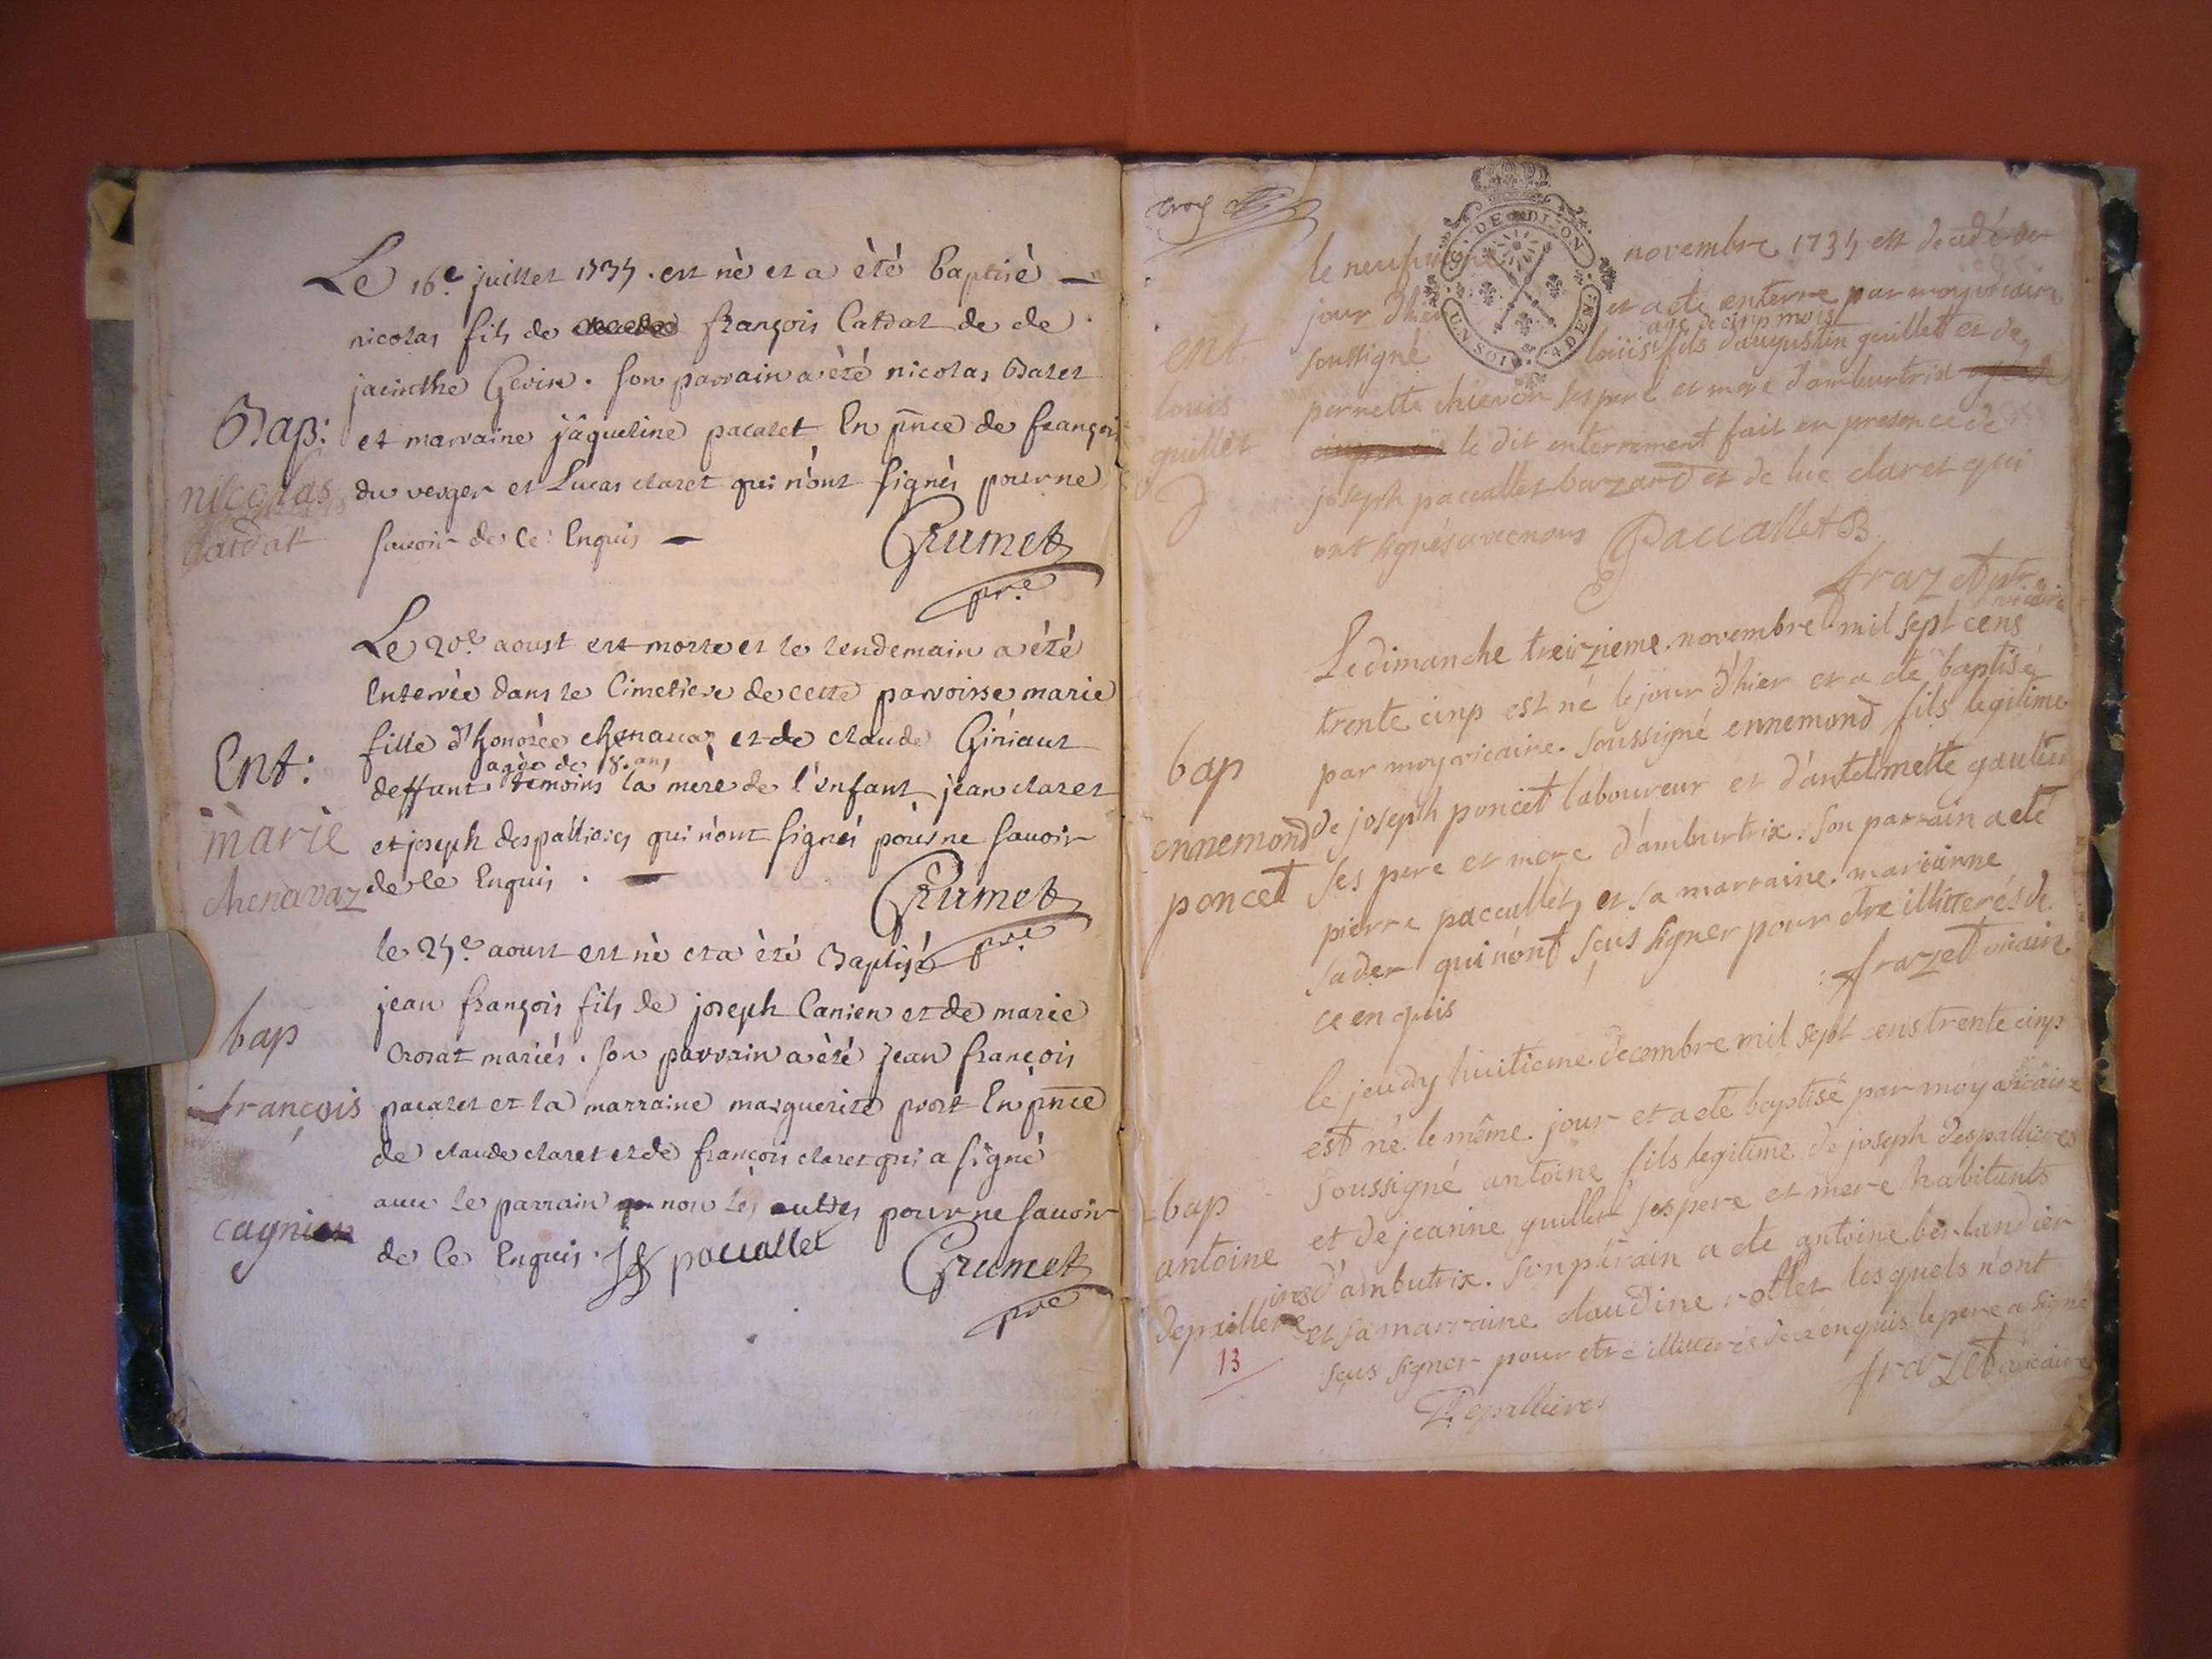 Le 16e juillet 1735. est nè et a èté baptisè —
nicolas fils de françois Cardat de de
jacinthe Gevin. son parrain a èté nicolas Baret
Bap: et marraine jâqueline pacalet En pnce de françois
nicolas du verger et Lucas claret qui n'ont signés pour ne
dardat savoir de ce Enquis —
Grumet
pre
Le 20e aoust est morte et le lendemain a été
Enterrèe dans le Cimetiere de cette parroisse marie
fille d'honorèe chenavaz et de claude Giniaut
Ent: agèe de 8. ans
deffunt temoins la mère de l'enfant jean claret
marie et joseph despallieres qui n'ont signés pour ne savoir
chenavaz de ce Enquis . —
Grumet
pre
le 25e aoust est nè et a èté Baptisé
jean françois fils de joseph Canien et de marie
bap Crosat mariés. son parrain a èté jean françois
françois pacalet et la marraine marguerite prost En pnce
de claude claret et de françois claret qui a signé
avec le parrain non les autres pour ne savoir
cagnien
de ce Enquis . J f paccallet
Grumet
pre
troy
DE DIJON
UN SOL 4 DEN.
le neuf novembre 1735 est decedé le
jour d'hier et a ete enterre par moy vicaire
agé de cinp mois
ent soussigné loüis fils d'augustin guillet et de
louis pernette chienon ses pere et mere d'amburtrix
guillet le dit enterrement fait en presence de
joseph paccallet bazard et de luc claret qui
ont signés avec nous Paccallet B
frazet ptre
vicaire
Le dimanche treizieme. novembre mil sept cens
trente cinp est né le jour d'hier et a ete baptisé
par moy vicaire. soussigné ennemond fils legitime
bap
ennemond de joseph poncet laboureur et d'antelmette gautier
poncet ses pere et mere d'amburtrix. son parrain a eté
pierre paccallet, et sa marraine. marianne
sader qui n'ont sçus signer pour etre illitterés de
ce enquis
frazet vicaire
le jeudy huitieme decembre mil sept cens trente cinp
est né le même. jour et a eté baptisé par moy vicaire
soussigné antoine fils legitime de joseph despallieres
bap et de jeanne guillet ses pere et mere habitants
antoine d'ambutrix. son pàrain a ete antoine berlandier
ires
depaillere et sa marraine claudine rollet lesquels n'ont
13 sçus signer pour etre illitterés de ce enquis le pere a signé
Depallieres
frazet vicaire